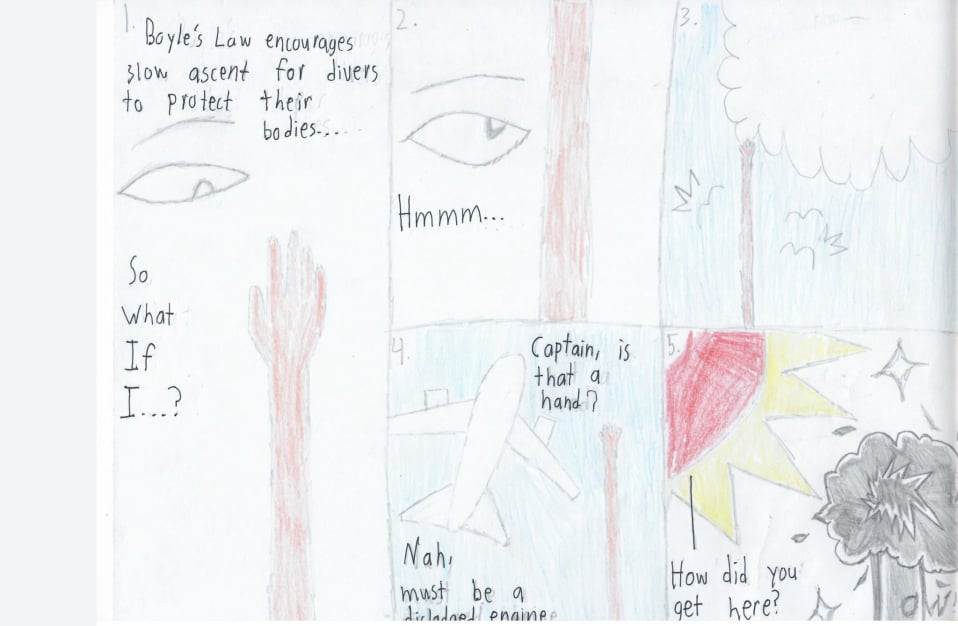 1.
Boyle's Law encourages
slow ascent for divers
to protect their
bodies.....
So
What
If
I....?
2.
Hmmm...
3.
4.
Captain, is
that a
hand?
Nah,
must be a
dislodged engine
5.
How did you
get here?
OW!